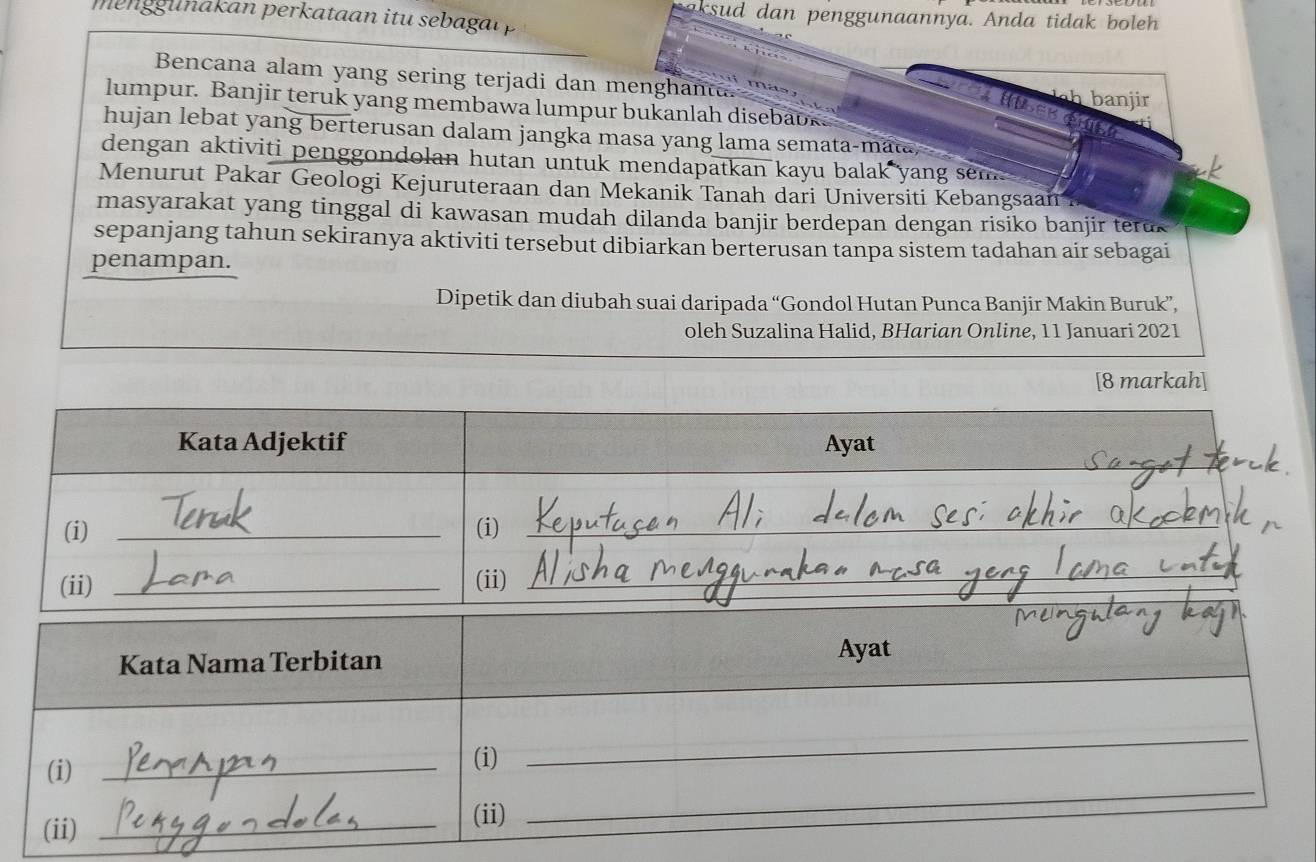 menggunakan perkataan itu sebagai
dan penggunaannya. Anda tidak boleh
Bencana alam yang sering terjadi dan
banjir
lumpur. Banjir teruk yang membawa lumpur bukanlah
hujan lebat yang berterusan dalam jangka masa yang lama
dengan aktiviti penggondolan hutan untuk mendapatkan kayu balak yang
Menurut Pakar Geologi Kejuruteraan dan Mekanik Tanah dari Universiti Kebangsaan
masyarakat yang tinggal di kawasan mudah dilanda banjir berdepan dengan risiko banjir teruk
sepanjang tahun sekiranya aktiviti tersebut dibiarkan berterusan tanpa sistem tadahan air sebagai
penampan.
Dipetik dan diubah suai daripada “Gondol Hutan Punca Banjir Makin Buruk”,
oleh Suzalina Halid, BHarian Online, 11 Januari 2021
[8 markah]
Kata Adjektif Ayat
sangat teruk.
(i) Teruk (i) Keputusan Ali dalam sesi akhir akademik
(ii) Lama (ii) Alisha menggunakan masa yang lama untuk
mengulang kaji.
Kata Nama Terbitan Ayat
(i) Penampan (i)
(ii) Penggondolan (ii)